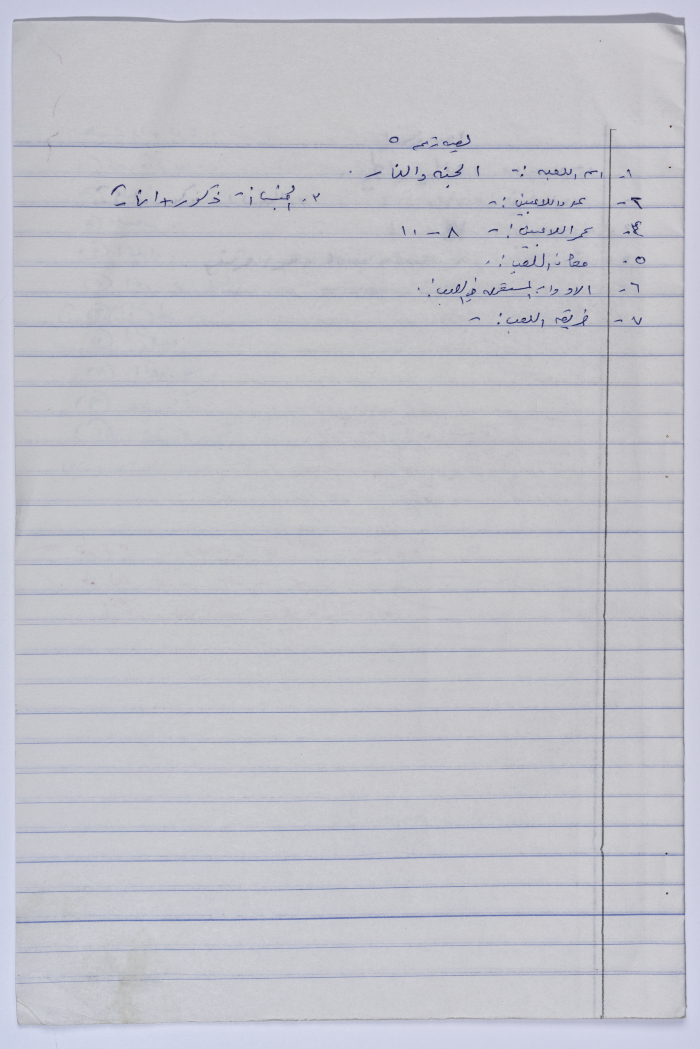 لعبه رقم ٥
١- اسم اللعبه :- الجنه والنار .
٢- عدد اللاعبين :- ٣- الجنس :- ذكور + اناث
٤- عمر اللاعبين :- ٨ - ١٠
٥- مكان اللعب :-
٦- الادوات المستخدمه في اللعب :-
٧- طريقه اللعب :-